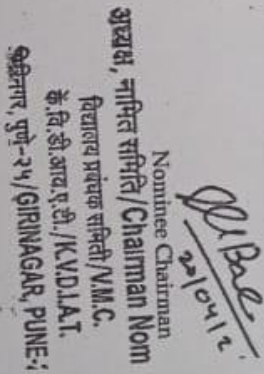 20/04/2
Nominee Chairman
अध्यक्ष, नामित समिति/Chairman Nom
विद्यालय प्रबंधक समिती/V.M.C.
के.वि.डी.आय.ए.टी./K.V.D.I.A.T.
गिरिनगर, पुणे-२५/GIRINAGAR, PUNE-